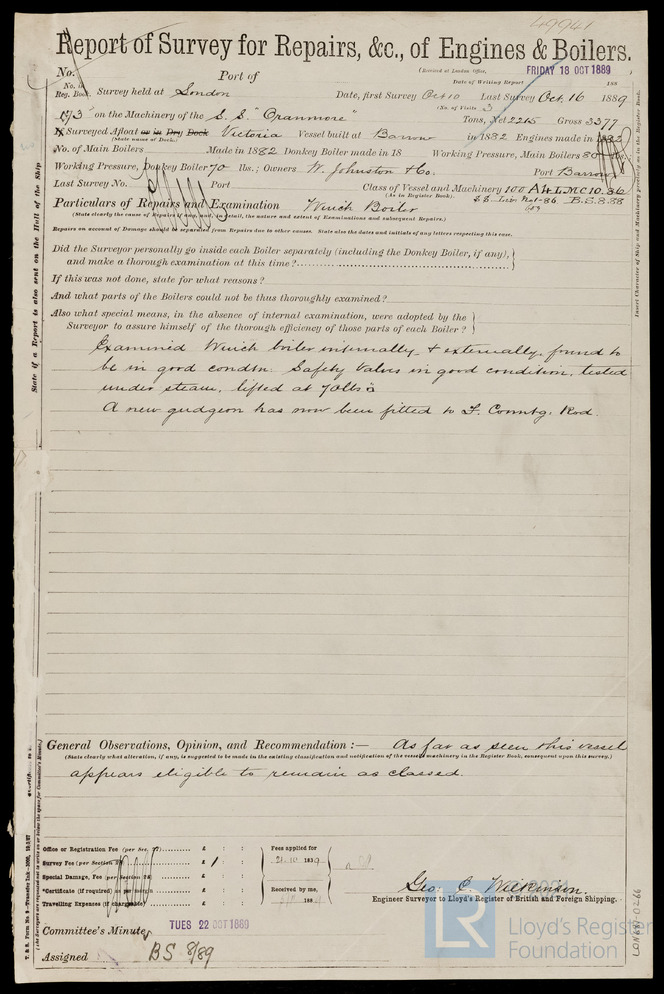 49941
Report of Survey for Repairs, &c., of Engines & Boilers.
No. Port of (Received at London Office, FRIDAY 18 OCT 1889
Date of Writing Report 188
No. in Reg. Book. Survey held at London Date, first Survey Oct 10 Last Survey Oct. 16 1889
(No. of Visits 3
173 on the Machinery of the S. S. "Cranmore" Tons, Net 2215 Gross 3377
Surveyed Afloat or in Dry Dock Victoria Vessel built at Barrow in 1882 Engines made in 1882
(State name of Dock.)
No. of Main Boilers Made in 1882 Donkey Boiler made in 18 Working Pressure, Main Boilers 80 lbs.
Working Pressure, Donkey Boiler 70 lbs.; Owners W. Johnston & Co. Port Barrow
Last Survey No. Port Class of Vessel and Machinery 100 A1 & LMC 10.86
(As in Register Book). B.S. 8.88
Particulars of Repairs and Examination Winch Boiler
(State clearly the cause of Repairs if any, and, in detail, the nature and extent of Examinations and subsequent Repairs.)
Repairs on account of Damage should be separated from Repairs due to other causes. State also the dates and initials of any letters respecting this case.
Did the Surveyor personally go inside each Boiler separately (including the Donkey Boiler, if any),
and make a thorough examination at this time?
If this was not done, state for what reasons?
And what parts of the Boilers could not be thus thoroughly examined?
Also what special means, in the absence of internal examination, were adopted by the
Surveyor to assure himself of the thorough efficiency of those parts of each Boiler?
Examined Winch boiler internally & externally, found to
be in good condtn. Safety Valves in good condition, tested
under steam, lifted at 70 lbs □"
A new gudgeon has now been fitted to F. Conntg. Rod.
General Observations, Opinion, and Recommendation :— As far as seen this vessel
(State clearly what alteration, if any, is suggested to be made in the existing classification and notification of the vessel's machinery in the Register Book, consequent upon this survey.)
appears eligible to remain as classed.
Office or Registration Fee (per Sec. £ : :
Survey Fee (per Section £ 1 : :
Special Damage, Fee (per Section £ : :
*Certificate (if required) as per margin £ : :
Travelling Expenses (if chargeable) £ : :
Fees applied for
1889
Received by me,
188
Geo. C. Wilkinson.
Engineer Surveyor to Lloyd's Register of British and Foreign Shipping.
Committee's Minute TUES 22 OCT 1889
Assigned BS 8/89
State if a Report is also sent on the Hull of the Ship
Insert Character of Ship and Machinery precisely as in the Register Book.
LR Lloyd's Register Foundation
LON681-0266